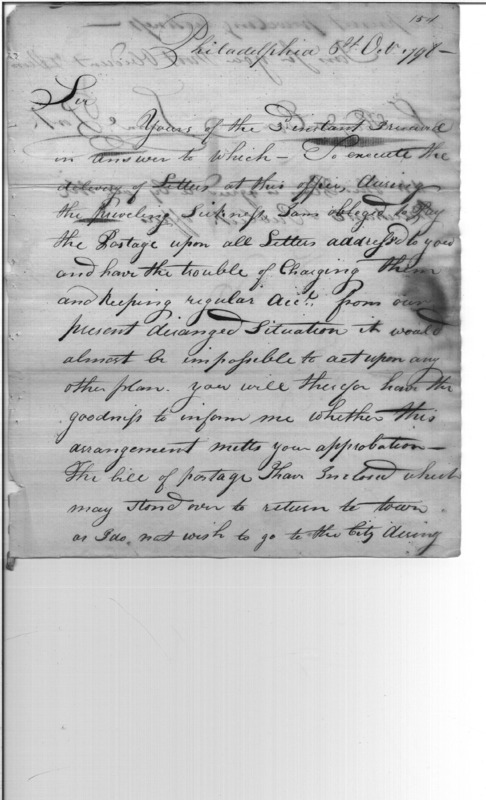 154
Philadelphia 6th Oct 1798 —
Sir
Yours of the 5 instant I received
in answer to which — To execute the
delivery of Letters at this office, during
the Preveling Sickness I am obleged to Pay
the Postage upon all Letters address'd to you
and have the trouble of Charging them
and Keeping regular Acct. from our
present diranged Situation it would
almost be impossible to act upon any
other plan. you will therefor have the
goodness to inform me whether this
arrangement metts your approbation —
The bill of postage I have Inclosed which
may stand over to return to town
as I do not wish to go to the City during